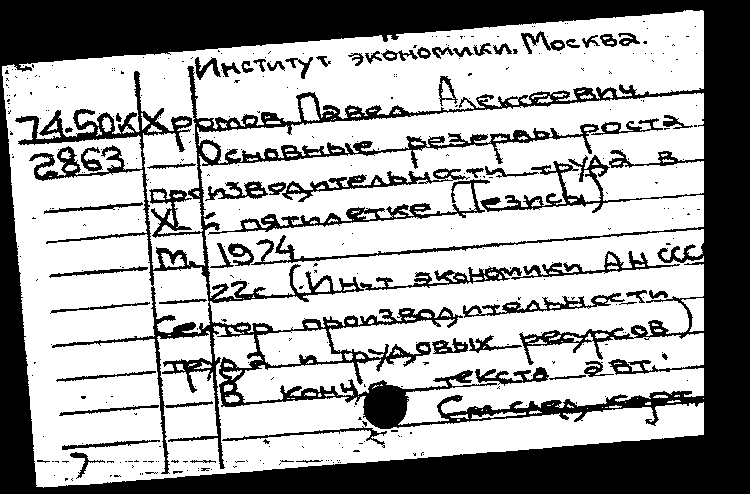 Институт экономики. Москва.
74-50К Хромов, Павел Алексеевич.
2863 Основные резервы роста
производительности труда в
XI-й пятилетке. (Тезисы)
М., 1974.
22с (Ин-т экономики АН СССР
Сектор производительности
труда и трудовых ресурсов)
В конце текста авт.:
См след. карт.
7